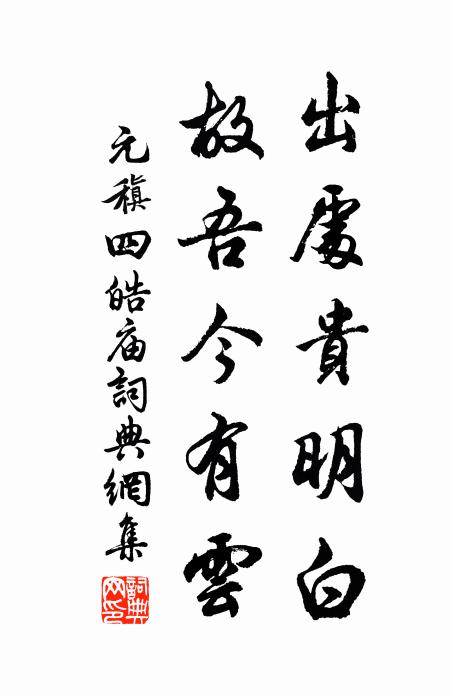 出處貴明白
故吾今有雲
元稹四皓庙詞典網集
詞典網印